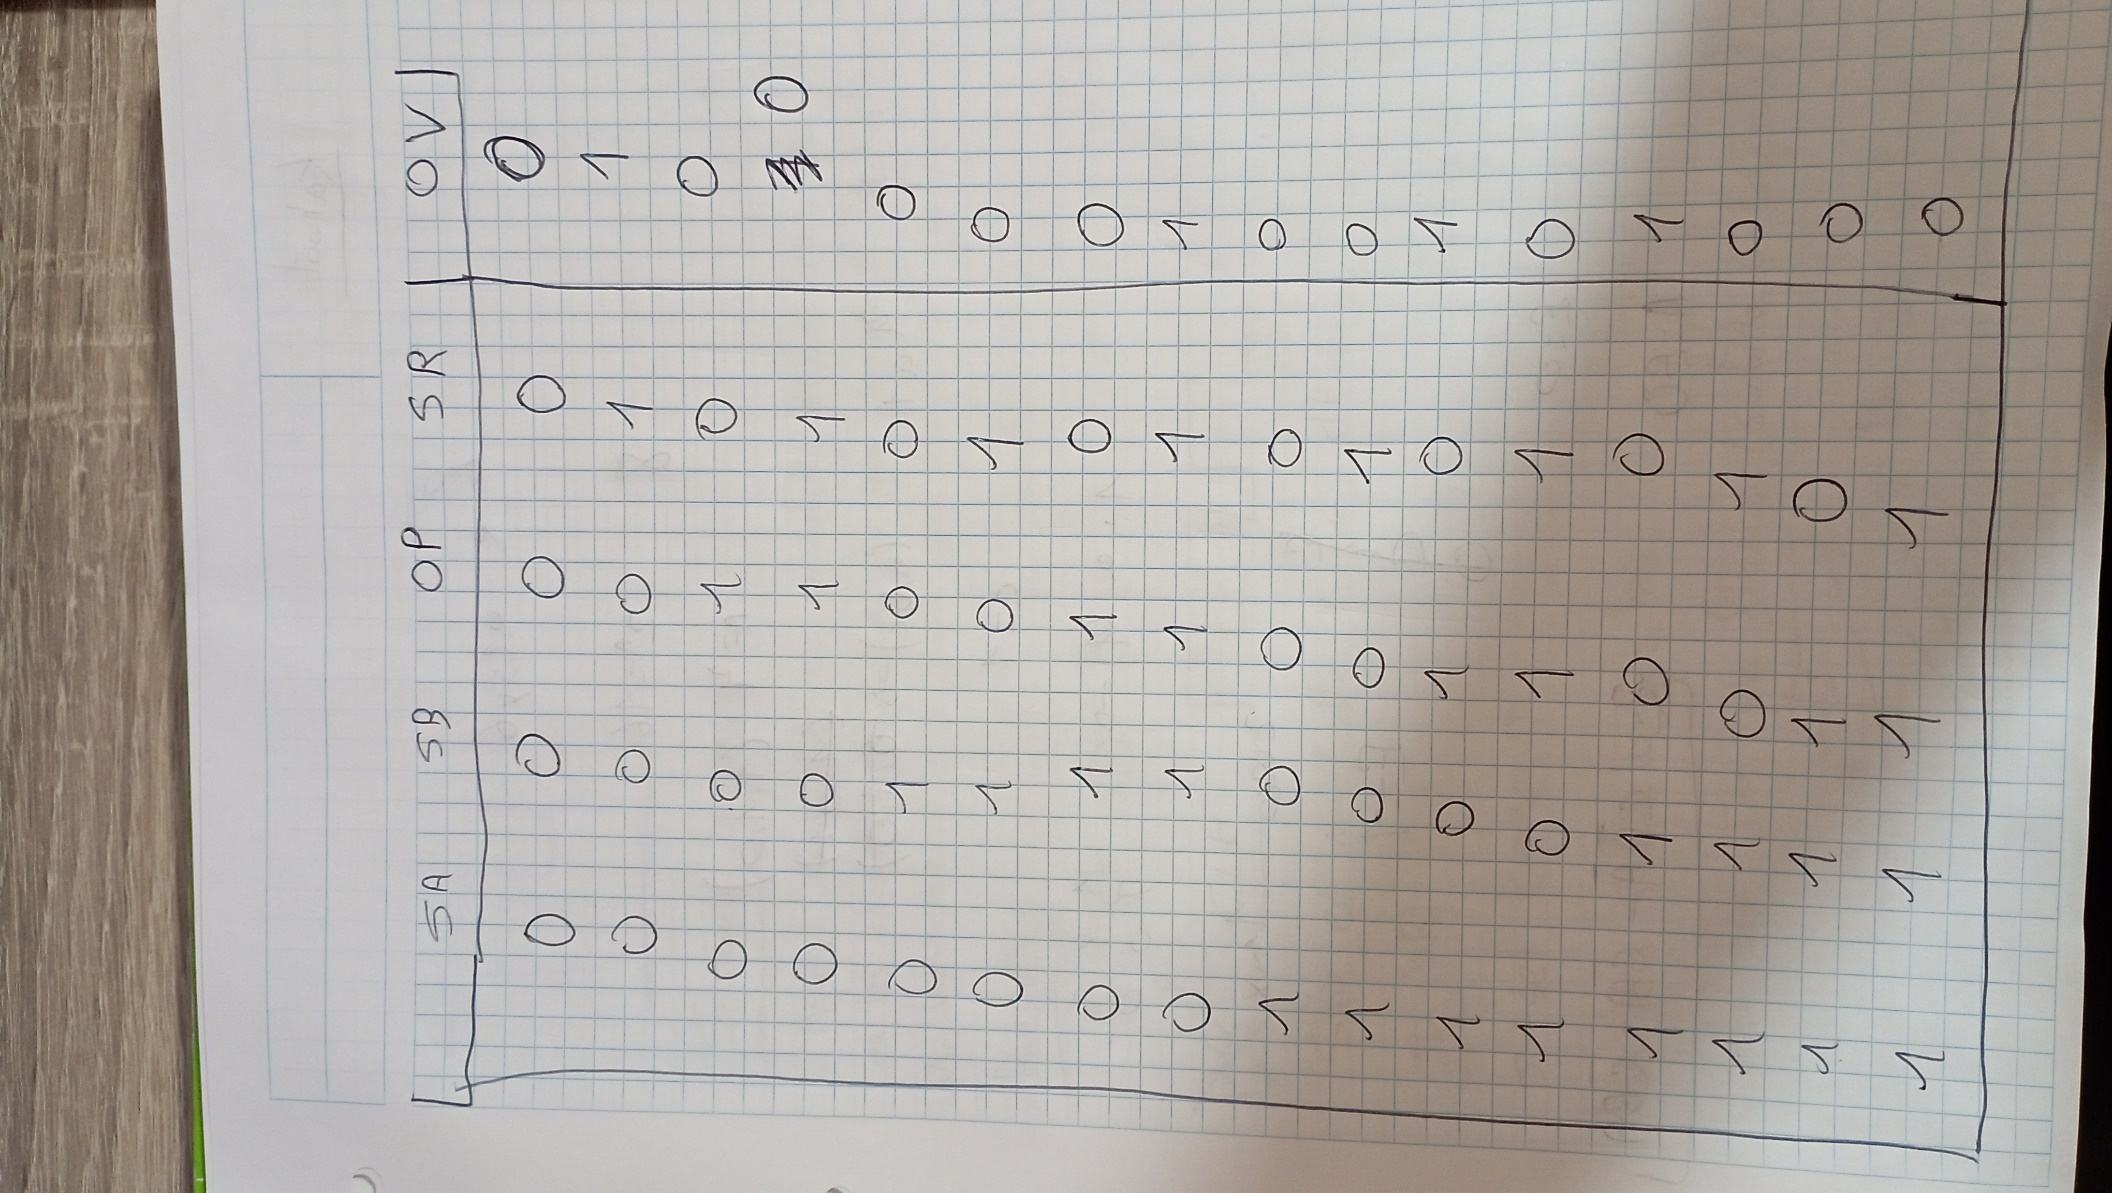 SA SB OP SR OV
0 0 0 0 0
0 0 0 1 1
0 0 1 0 0
0 0 1 1 0
0 1 0 0 0
0 1 0 1 0
0 1 1 0 0
0 1 1 1 1
1 0 0 0 0
1 0 0 1 0
1 0 1 0 1
1 0 1 1 0
1 1 0 0 1
1 1 0 1 0
1 1 1 0 0
1 1 1 1 0